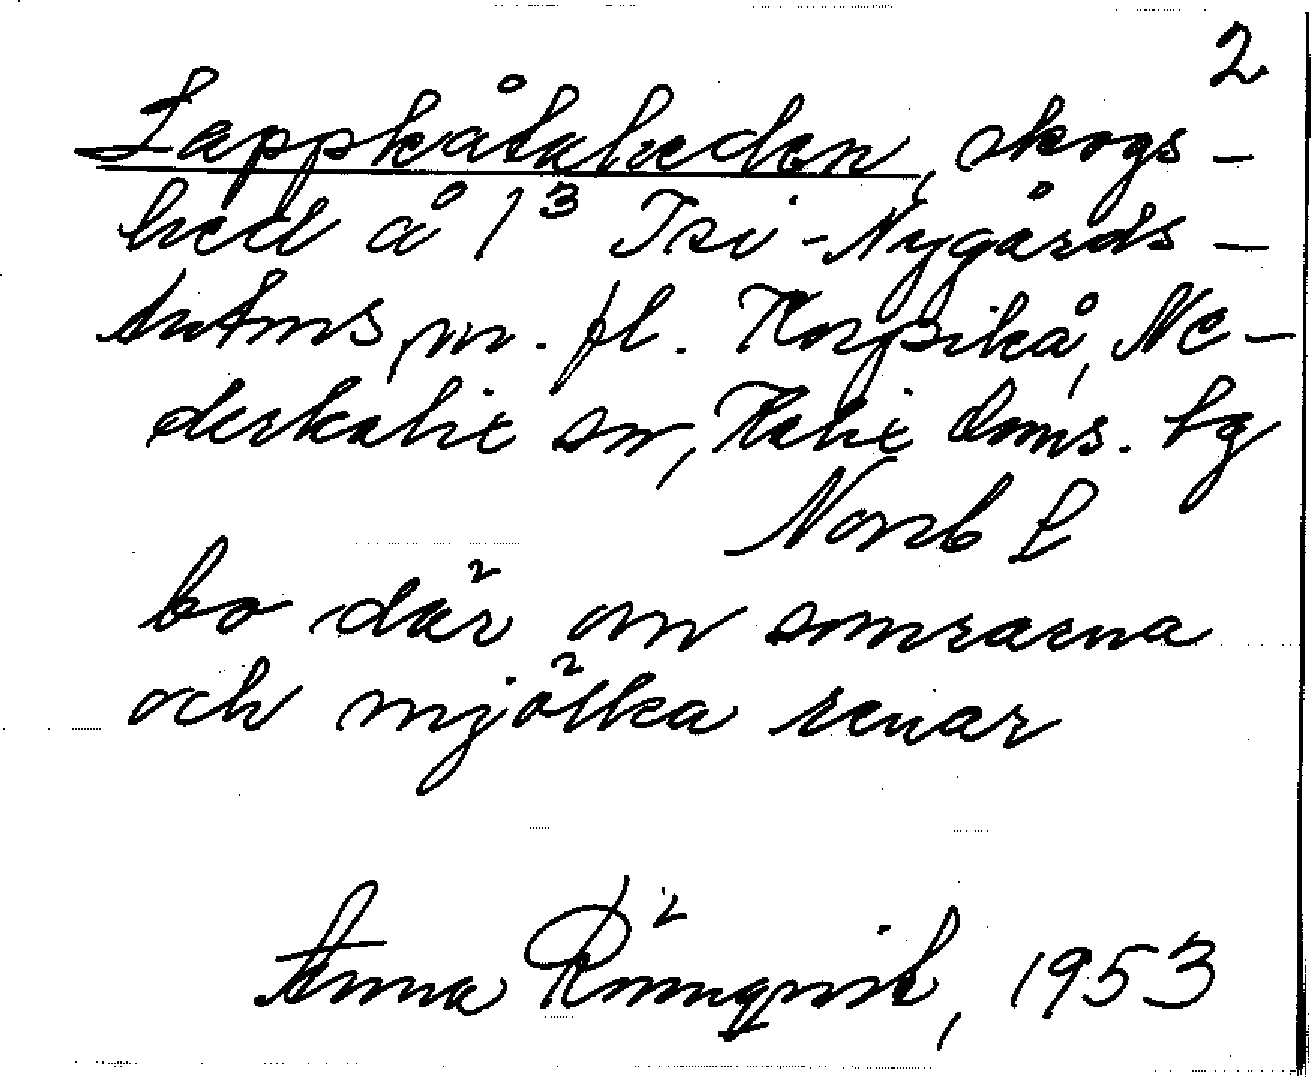 2
Lappkåtaheden, skogs-
hed å 1³ Isi-Nygårds-
m. fl. Korpikå, Ne-
derkalix sn, Kalix doms. tg
Norrb L
bo där om somrarna
och mjölka renar
Anna Rönnqvist, 1953